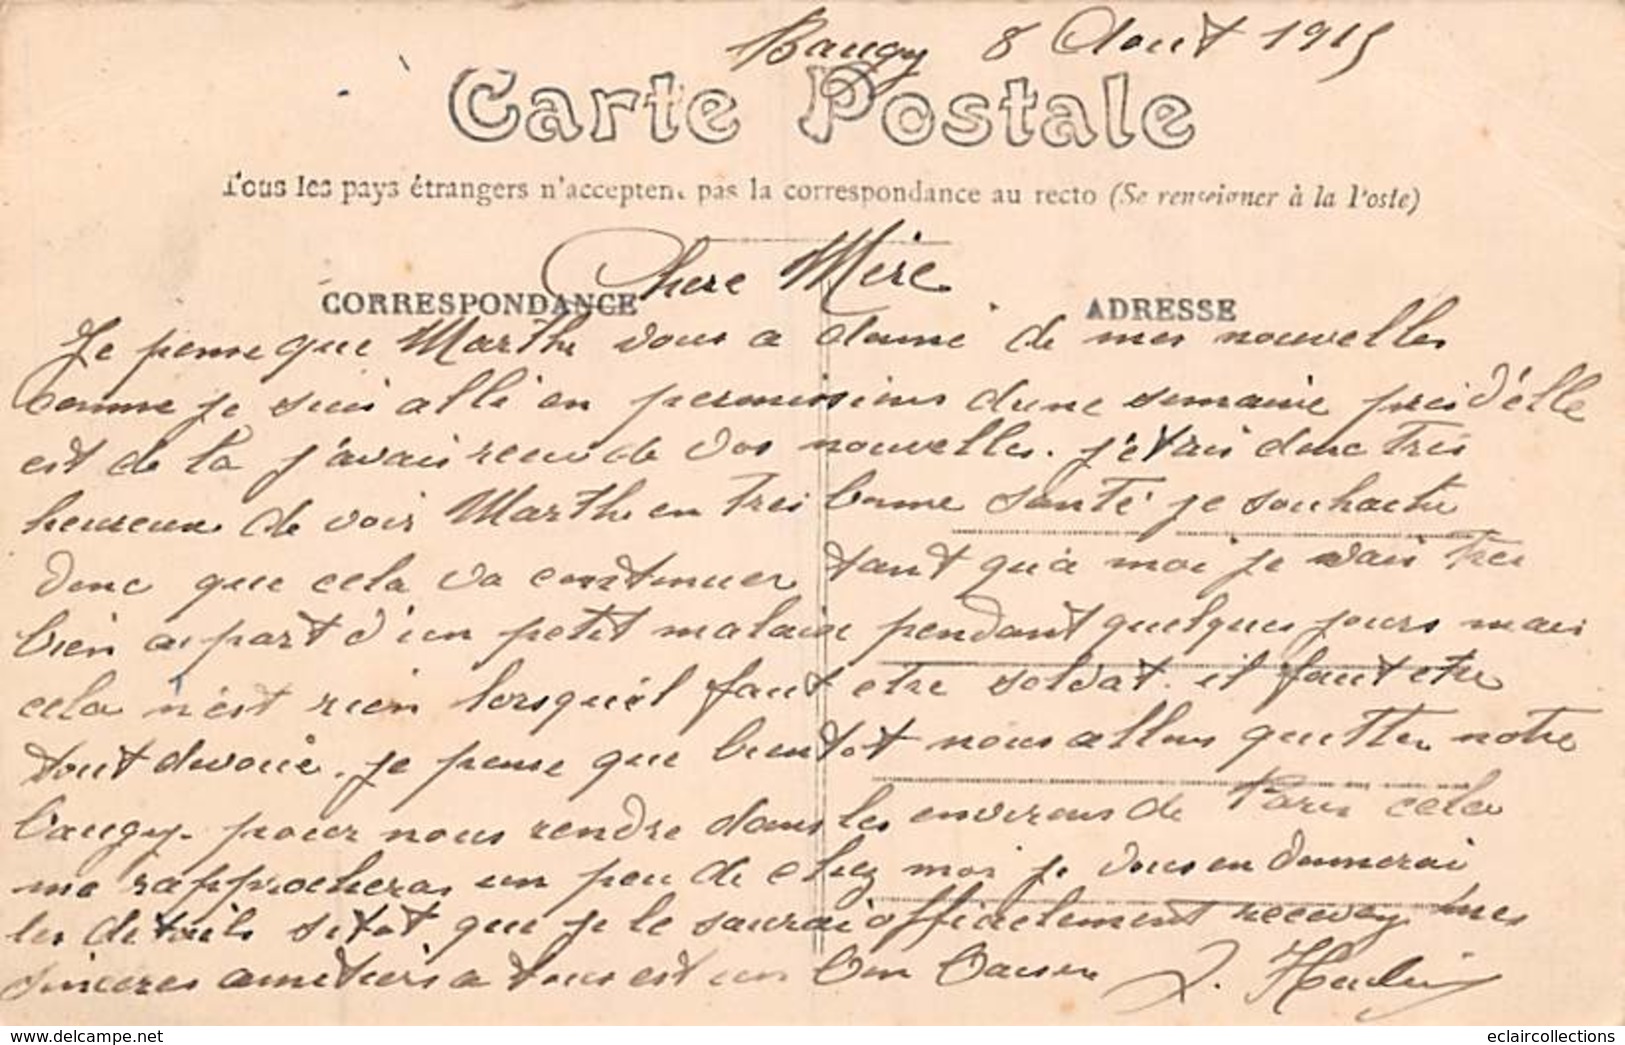 Baugy 8 Aout 1915
Carte Postale
Tous les pays étrangers n'acceptent pas la correspondance au recto (Se renseigner à la Poste)
Chere Mere
CORRESPONDANCE ADRESSE
Je pense que Marthe vous a donné de mes nouvelles
comme je suis allé en permissions d'une semaine pres d'elle
est de la j'avais recu de vos nouvelles. j'étais donc tres
heureux de voir Marthe en tres bonne santé je souhaite
donc que cela va continuer tant qu'a moi je vais tres
bien a part d'un petit malaise pendant quelques jours mais
cela n'est rien lorsqu'il faut etre soldat. il faut etre
tout devoué. je pense que bientot nous allons quitter notre
baugy. pour nous rendre dans les environs de Paris cela
me rapprochera un peu de chez moi je vous en donnerai
les details sitot que je le saurai officielement recevez mes
sinceres amitiers a tous est un bon baiser
delcampe.net
eclaircollections